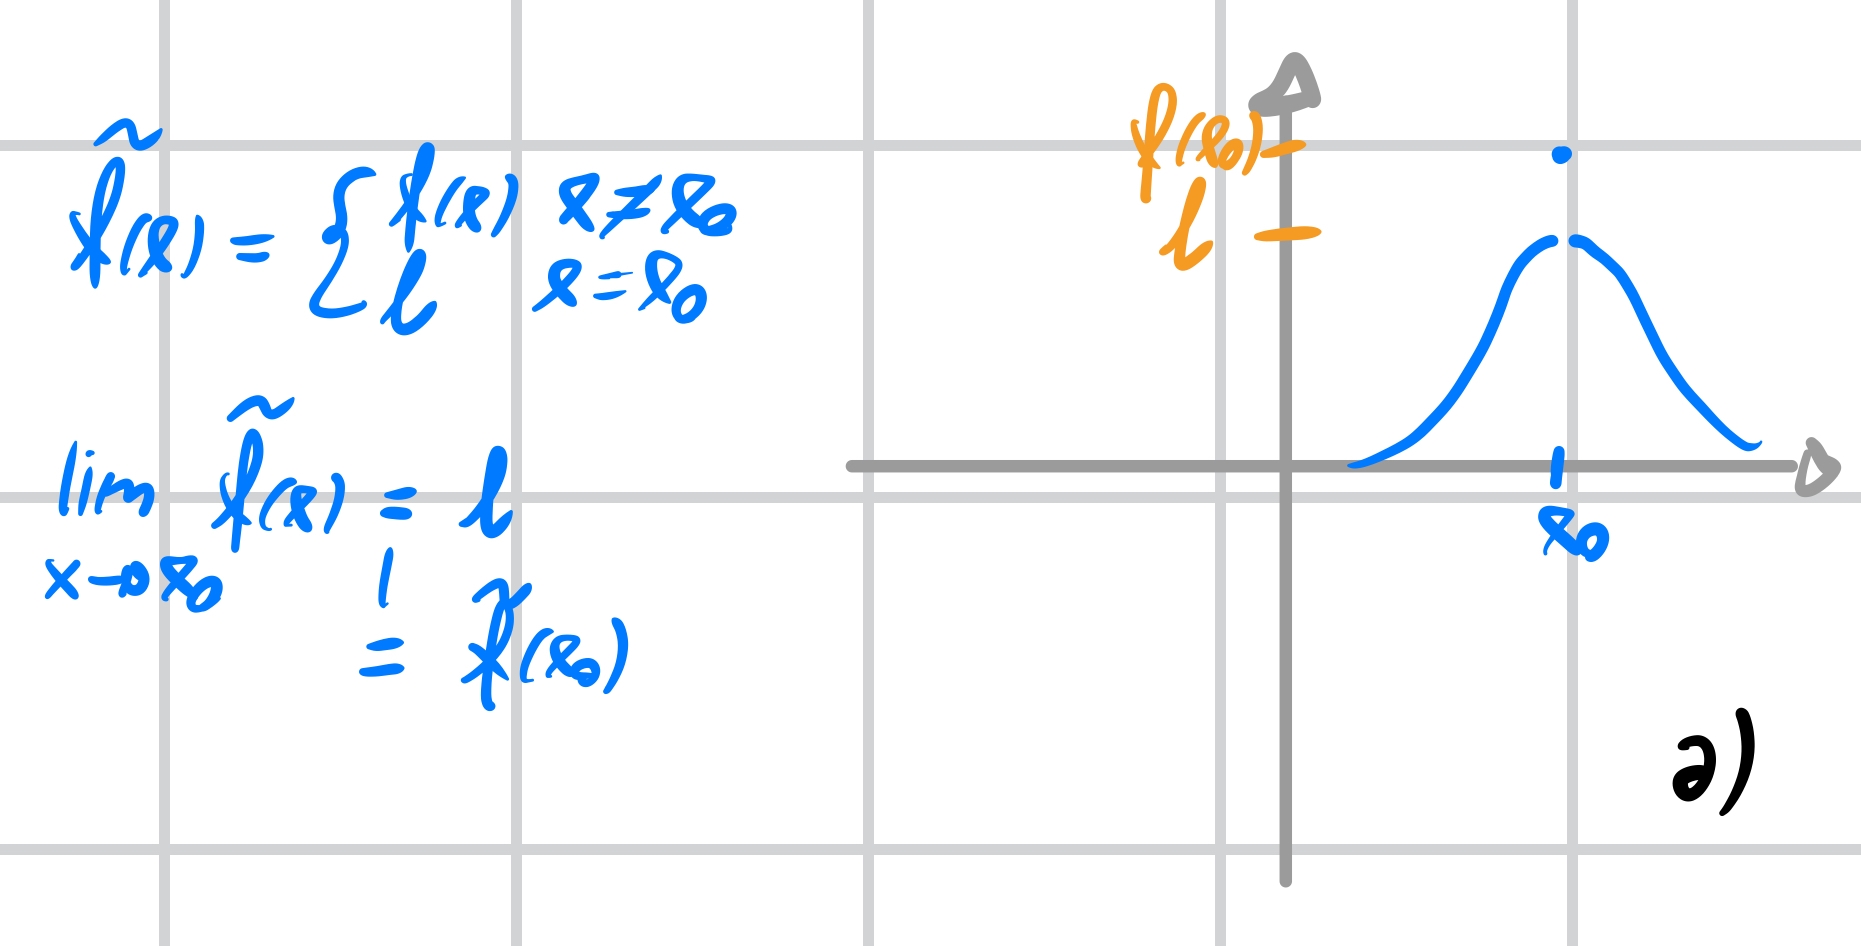 f̃(x) = { f(x) x ≠ x₀
l x = x₀
lim f̃(x) = l
x→x₀
= f̃(x₀)
f(x₀)
l
x₀
a)